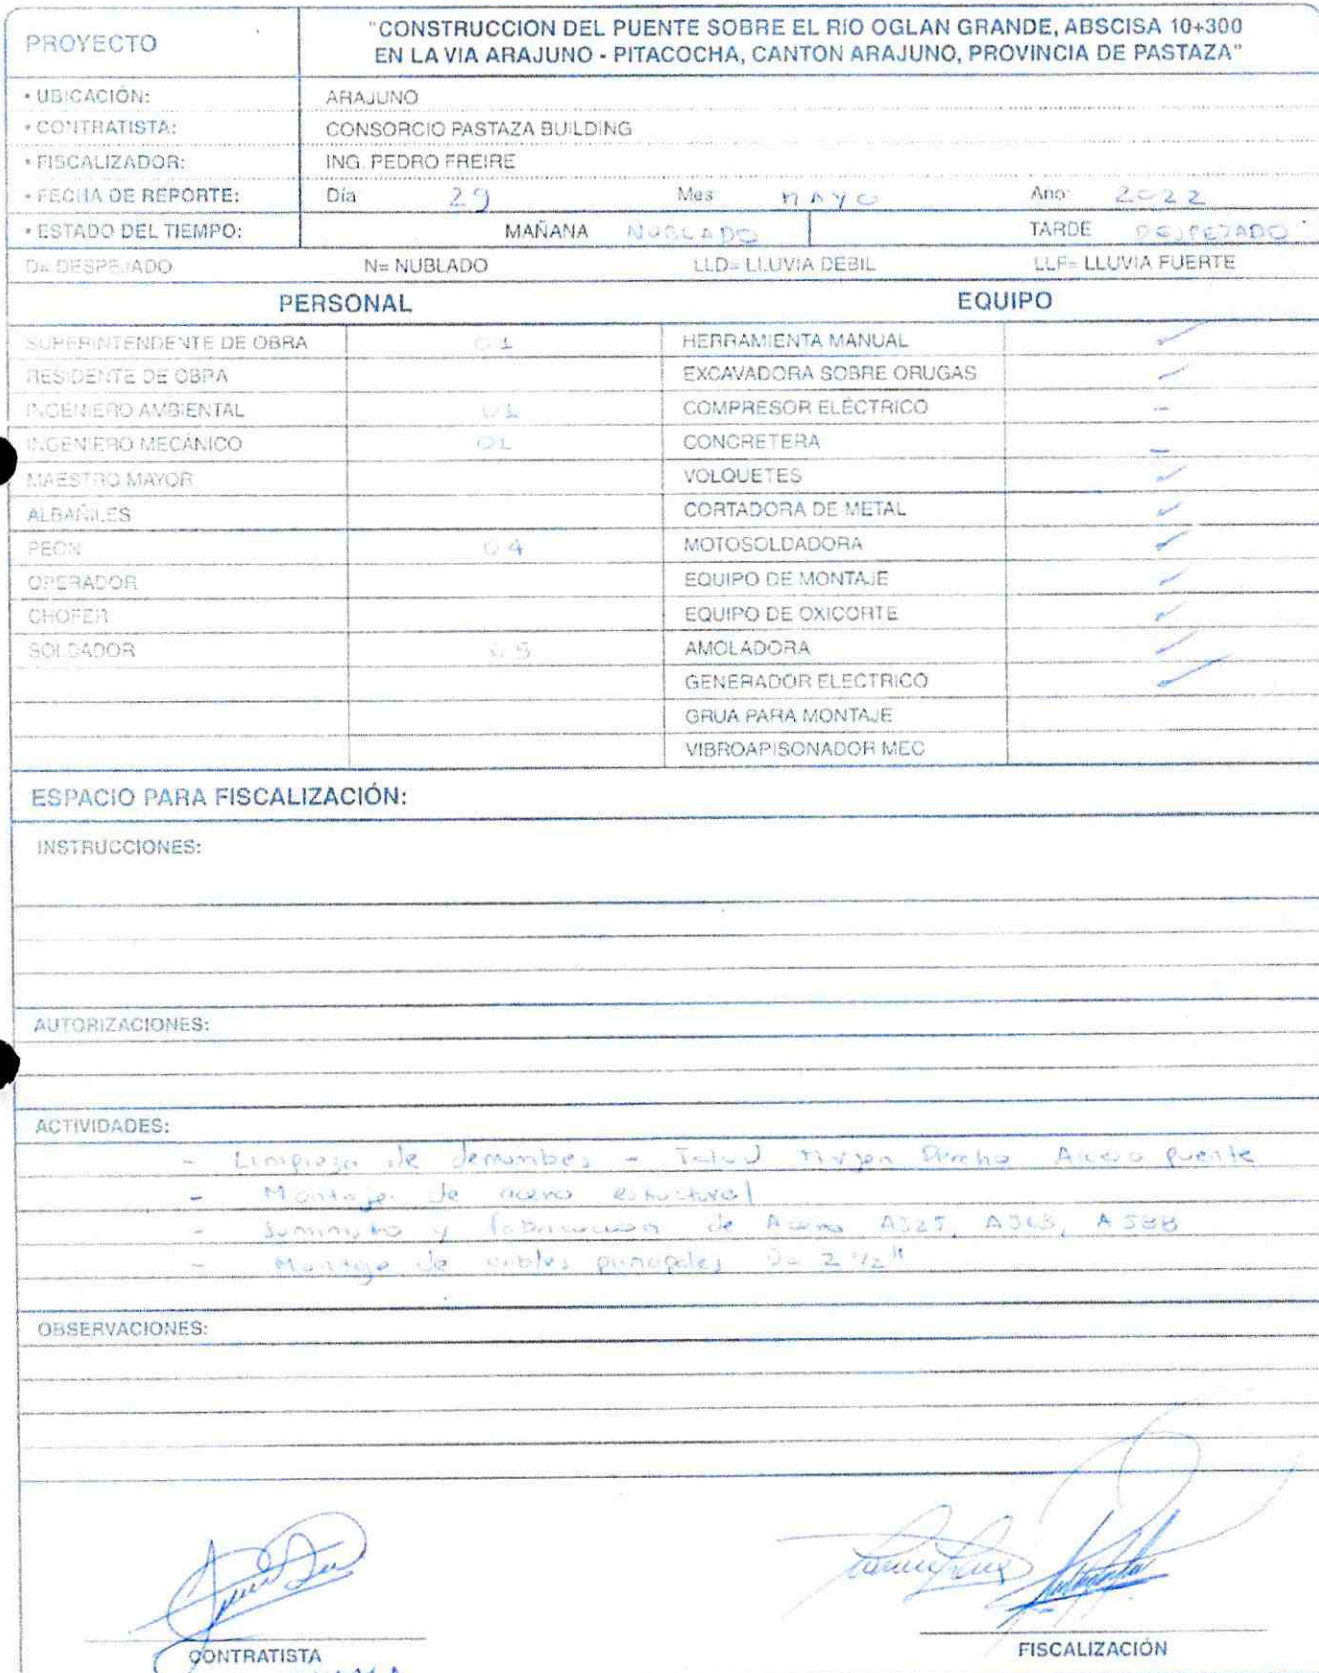 PROYECTO
"CONSTRUCCION DEL PUENTE SOBRE EL RIO OGLAN GRANDE, ABSCISA 10+300
EN LA VIA ARAJUNO - PITACOCHA, CANTON ARAJUNO, PROVINCIA DE PASTAZA"
• UBICACIÓN: ARAJUNO
• CONTRATISTA: CONSORCIO PASTAZA BUILDING
• FISCALIZADOR: ING. PEDRO FREIRE
• FECHA DE REPORTE: Día 29 Mes MAYO Ano: 2022
• ESTADO DEL TIEMPO: MAÑANA NUBLADO TARDE DESPEJADO
D= DESPEJADO N= NUBLADO LLD= LLUVIA DEBIL LLF= LLUVIA FUERTE
PERSONAL EQUIPO
SUPERINTENDENTE DE OBRA 01 HERRAMIENTA MANUAL ✓
RESIDENTE DE OBRA EXCAVADORA SOBRE ORUGAS ✓
INGENIERO AMBIENTAL 01 COMPRESOR ELÉCTRICO -
INGENIERO MECÁNICO 01 CONCRETERA -
MAESTRO MAYOR VOLQUETES ✓
ALBAÑILES CORTADORA DE METAL ✓
PEON 04 MOTOSOLDADORA ✓
OPERADOR EQUIPO DE MONTAJE ✓
CHOFER EQUIPO DE OXICORTE ✓
SOLDADOR 05 AMOLADORA ✓
GENERADOR ELECTRICO ✓
GRUA PARA MONTAJE
VIBROAPISONADOR MEC
ESPACIO PARA FISCALIZACIÓN:
INSTRUCCIONES:
AUTORIZACIONES:
ACTIVIDADES:
- Limpieza de derrumbes - Talud Margen Derecho Acceso puente
- Montaje de acero estructural
- Suministro y fabricación de Acero A325, A563, A588
- Montaje de cables principales De 2 1/2"
OBSERVACIONES:
CONTRATISTA FISCALIZACIÓN